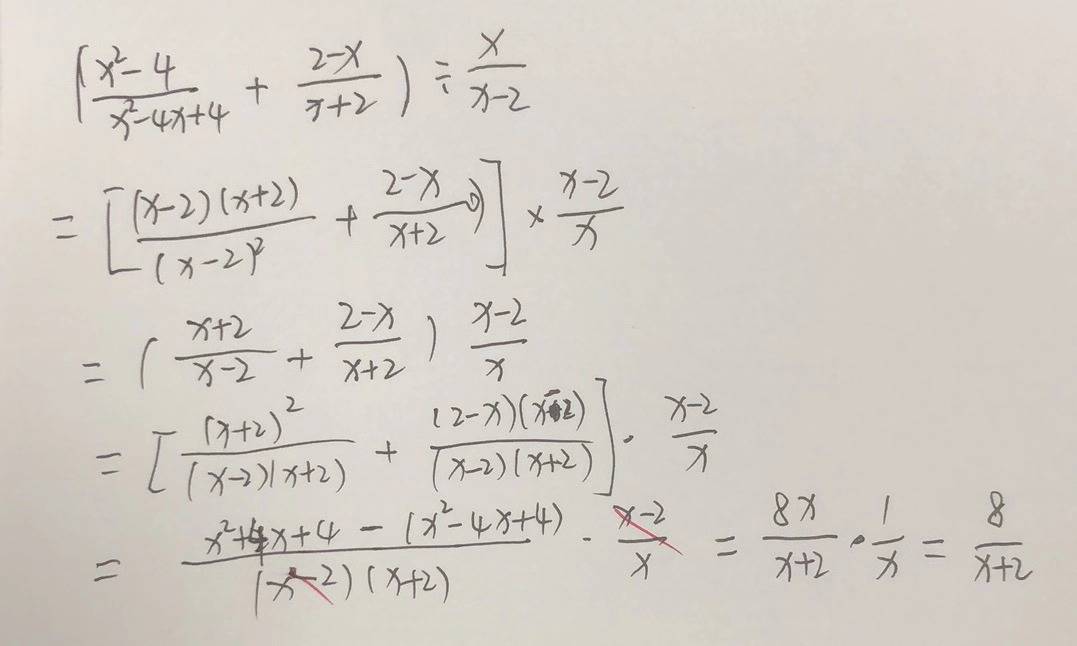 (\frac{x^2-4}{x^2-4x+4} + \frac{2-x}{x+2}) ÷ \frac{x}{x-2}
= [\frac{(x-2)(x+2)}{(x-2)^2} + \frac{2-x}{x+2})] × \frac{x-2}{x}
= (\frac{x+2}{x-2} + \frac{2-x}{x+2}) \frac{x-2}{x}
= [\frac{(x+2)^2}{(x-2)(x+2)} + \frac{(2-x)(x-2)}{(x-2)(x+2)}] · \frac{x-2}{x}
= \frac{x^2+4x+4-(x^2-4x+4)}{(x-2)(x+2)} · \frac{x-2}{x} = \frac{8x}{x+2} · \frac{1}{x} = \frac{8}{x+2}